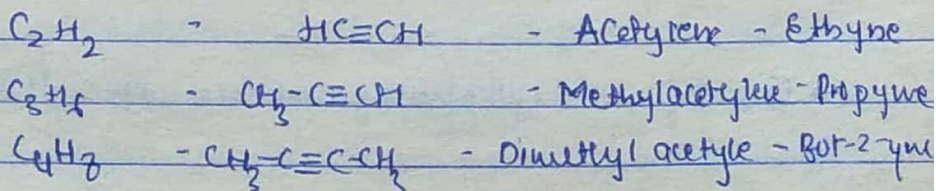 C2H2 - HC≡CH - Acetylene - Ethyne
C3H6 - CH3-C≡CH - Methylacetylene - Propyne
C4H8 - CH3-C≡C-CH3 - Dimethyl acetyle - But-2-yne